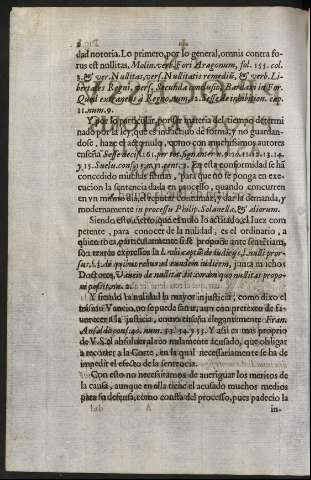 dad notoria. Lo primero, por lo general, omnis contra fo-
rus est nullitas, Molin. verb. Fori Aragonum, fol. 155. col.
3. & ver. Nullitas, vers. Nullitatis remediũ, & verb. Li-
bertates Regni, vers. Secunda conclusio, Bardaxi in For.
Quod extraneus à Regno, num. 12. Sesse de inhibition. cap.
11. num. 9.
Y por lo particular, por ser materia del tiempo determi
nado por la ley, que es inducido de forma, y no guardan-
dose, haze el acto nulo, como con muchissimos autores
enseña Sesse decis. 61. per tot. signanter n. 9. 10. 11. 12. 13. 14.
y 15. Suelu. cons. 37. per cent. 2. En esta conformidad se há
concedido muchas firmas, para que no se ponga en exe-
cucion la sentencia dada en processo, quando concurren
en vn mismo dia, el reputar contumàz, y dar la demanda, y
modernamente in processu Philip. Solanella, & aliorum.
Siendo esto cierto, que es nulo lo actitado, el Iuez com
petente, para conocer de la nulidad, es el ordinario, a
quien toca, particularmente si se propone ante sententiam,
son textos expressos la l. nulli captio de iudicijs, l. nulli pror-
sus, l. 3. de quibus rebus ad eundem iudicem, junta muchos
Doctores, Vancio de nullitate tit. coram quo nullitas propo-
ni possit, nu. 2.
Y siendo la nulidad la mayor injusticia, como dixo el
mismo Vancio, no se pueda sanar, aun con pretexto de fa-
uorecer a la justicia, como enseña elegantemente Fran.
Ansaldo cons. 40. num. 53. 54. y 55. Y assi es mas proprio
de V. S. el absoluer al reo nulamente acusado, que obligar
a recorrer a la Corte, en la qual necessariamente se ha de
impedir el efecto de la sentencia.
Con esto no necessitamos de aueriguar los meritos de
la causa, aunque en ella tiene el acusado muchos medios
para su defensa, como consta del processo, pues padecio la
in-